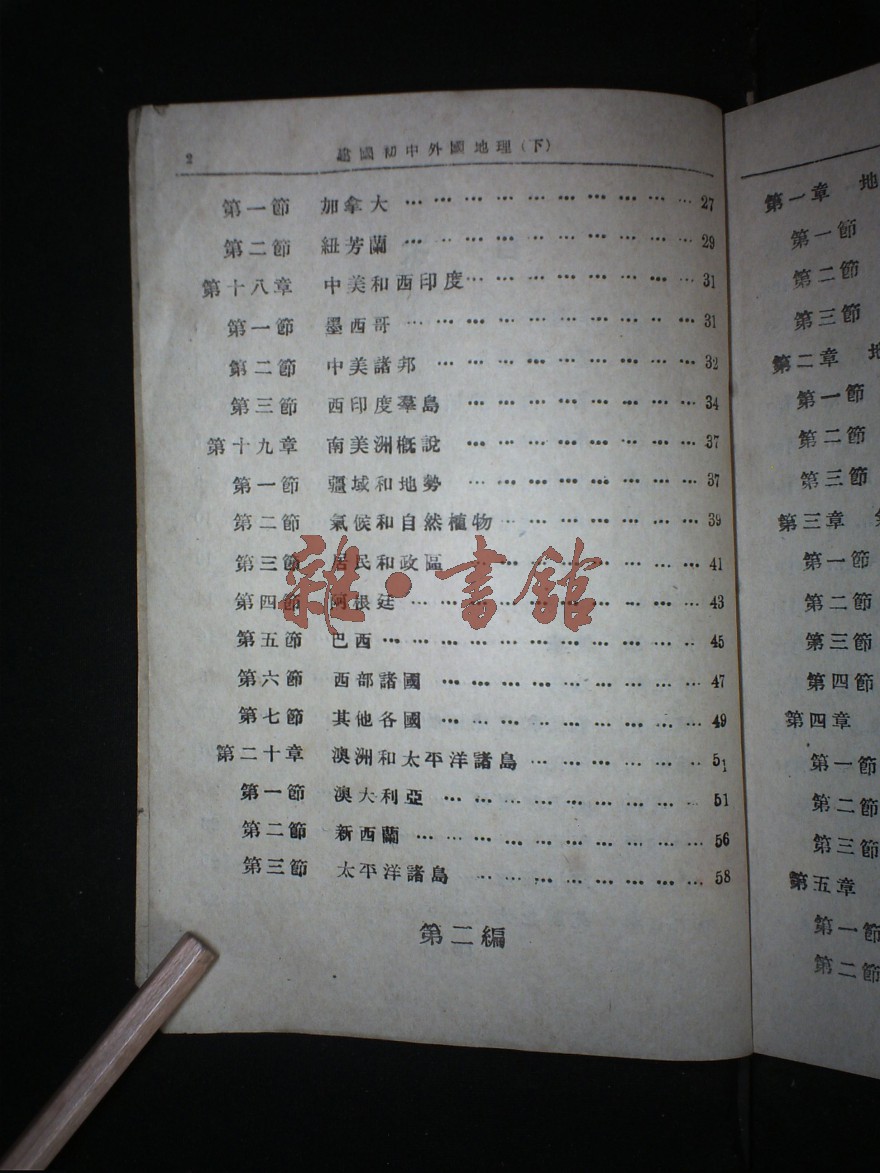 2
建國初中外國地理(下)
第一節 加拿大 … … … … … … … … … … … 27
第二節 紐芳蘭 … … … … … … … … … … … 29
第十八章 中美和西印度… … … … … … … … … 31
第一節 墨西哥 … … … … … … … … … … … 31
第二節 中美諸邦 … … … … … … … … … … 32
第三節 西印度羣島 … … … … … … … … … 34
第十九章 南美洲概說 … … … … … … … … … 37
第一節 疆域和地勢 … … … … … … … … … 37
第二節 氣候和自然植物… … … … … … … … 39
第三節 居民和政區 … … … … … … … … … 41
第四節 阿根廷 … … … … … … … … … … … 43
第五節 巴西… … … … … … … … … … … … 45
第六節 西部諸國 … … … … … … … … … … 47
第七節 其他各國 … … … … … … … … … … 49
第二十章 澳洲和太平洋諸島 … … … … … … … 51
第一節 澳大利亞 … … … … … … … … … … 51
第二節 新西蘭… … … … … … … … … … … 56
第三節 太平洋諸島 … … … … … … … … … 58
第二編
雜·書館
第一章 地
第一節
第二節
第三節
第二章
第一節
第二節
第三節
第三章
第一節
第二節
第三節
第四節
第四章
第一節
第二節
第三節
第五章
第一節
第二節